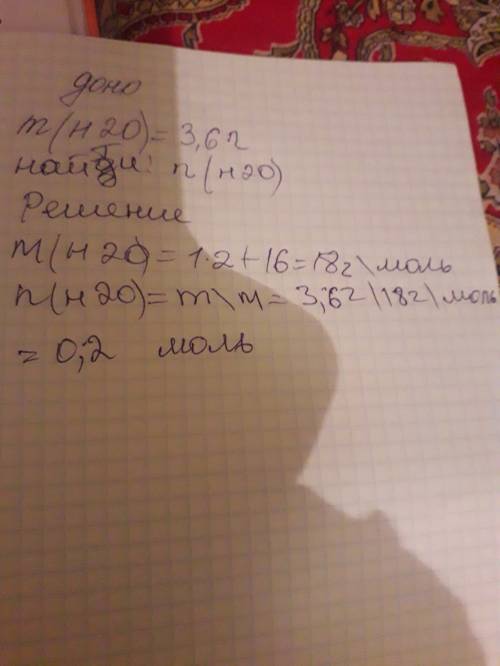 доно
m(н20)= 3,6г
найти: n(н20)
Решение
M(н20)= 1·2+16=18г\моль
n(н20)= m\м= 3,6г\18г\моль
= 0,2 моль